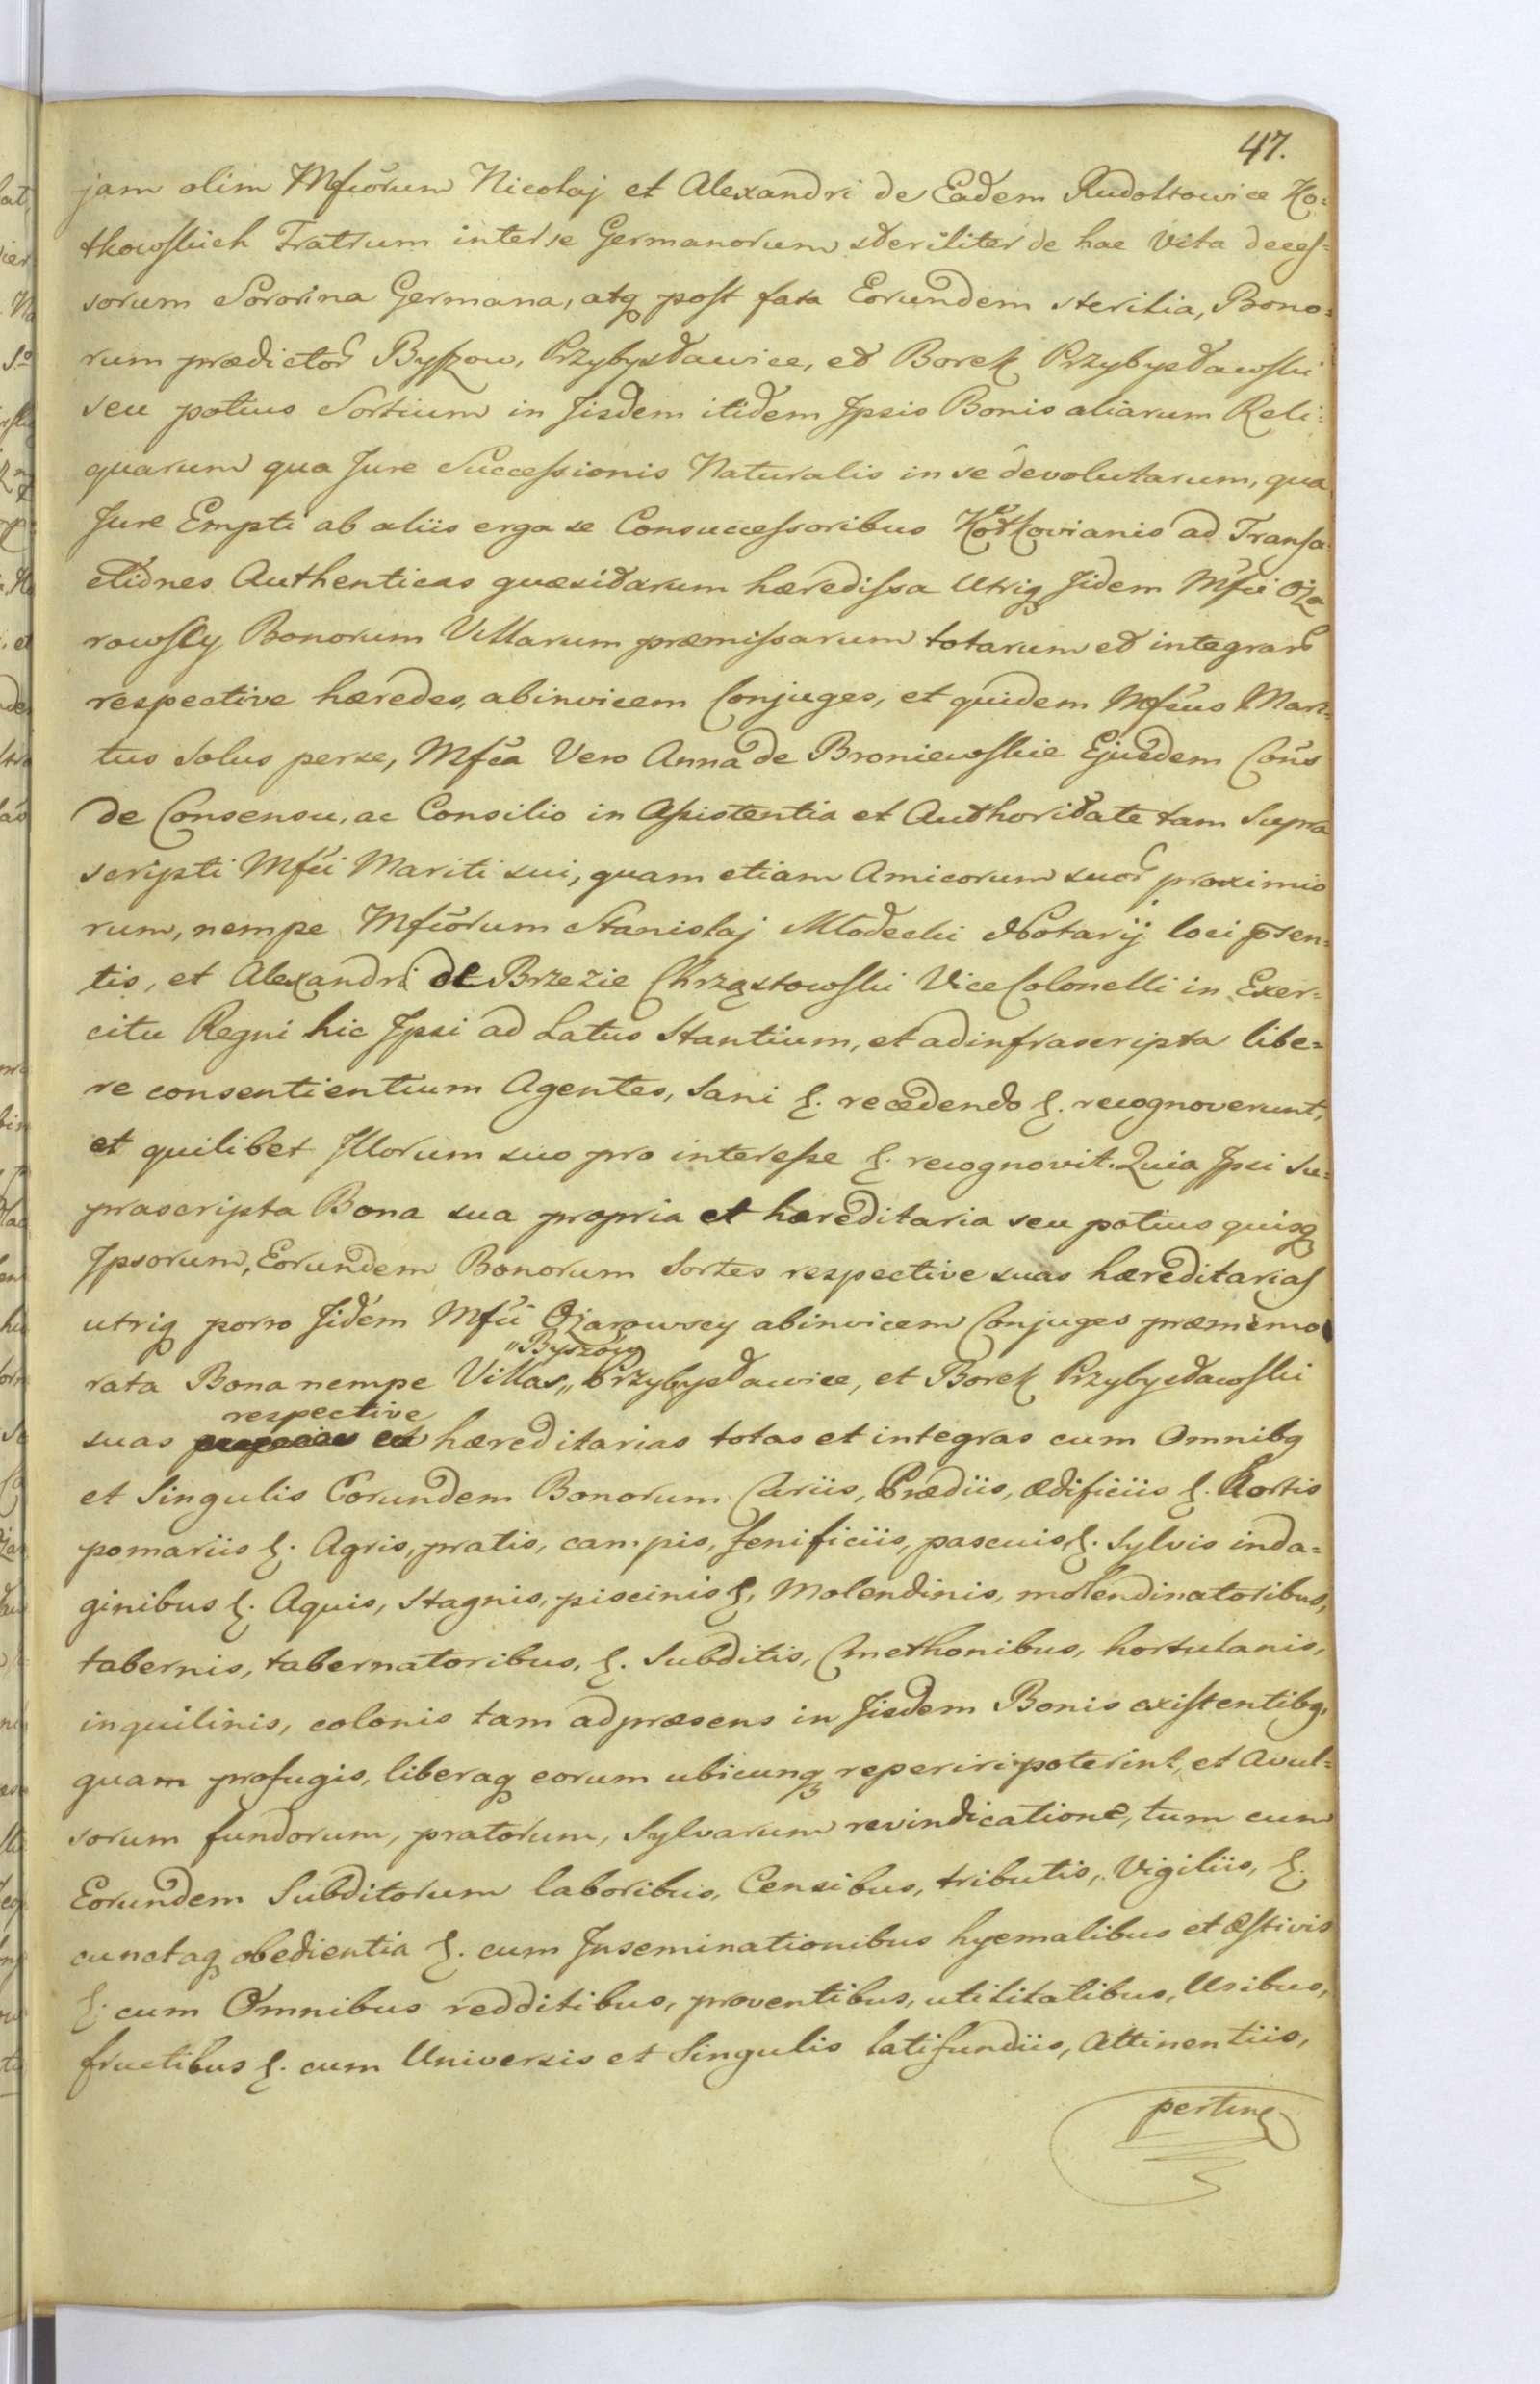 47.
jam olim Mfcorum Nicolaj et Alexandri de Eadem Rudoltowice Ko=
tkowskich Fratrum inter se Germanorum steriliter de hac Vita deces=
sorum Sororina Germana, atq post fata Eorundem sterilia, Bono=
rum prædictor Byszow, Przybysławice, et Borek Przybysławski
seu potius Sortium in Jisdem itidem Ipsis Bonis aliarum Reli=
quarum qua Jure Successionis Naturalis in se devolutarum, qua
Jure Empti ab aliis erga se Consuccessoribus Kotkovianis ad Transa=
ctiones Authenticas quæsitarum hæredissa Utriq Jidem Mfci Oża
rowscy Bonorum Villarum præmissarum totarum et integrar
respective hæredes, abinvicem Conjuges, et quidem Mfcus Mari=
tus Solus per se, Mfca Vero Anna de Broniewskie Ejusdem Cons
de Consensu, ac Consilio in Assistentia et Authoritate tam Supra
scripti Mfci Mariti sui, quam etiam Amicorum suor proximio
rum, nempe Mfcorum Stanislaj Młodecki Notarij loci psen=
tis, et Alexandri de Brzezie Chrząstowski Vice Colonelli in Exer=
citu Regni hic Ipsi ad Latus Stantium, et ad infrascripta libe=
re consentientium Agentes, Sani &. recedendo &. recognoverunt,
et quilibet Illorum suo pro interesse &. recognovit. Quia Ipsi Su=
prascripta Bona sua propria et hæreditaria seu potius quisq
Ipsorum, Eorundem Bonorum Sortes respective suas hæreditarias
utriq porro Jidem Mfci Ożarowscy abinvicem Conjuges præmemo
"Byszow
rata Bona nempe Villas,, Przybysławice, et Borek Przybysławski
respective
suas hæreditarias totas et integras cum Omnibq
et Singulis Eorundem Bonorum Curiis, Prædiis, ædificiis &. Hortis
pomariis &. Agris, pratis, campis, fenificiis, pascuis, &. Sylvis inda=
ginibus &. Aquis, Stagnis, piscinis &, Molendinis, molendinatoribus,
tabernis, tabernatoribus, &. Subditis, Cmethonibus, hortulanis,
inquilinis, colonis tam ad præsens in Jisdem Bonis existentibq,
quam profugis, liberaq eorum ubicunq reperiri poterint, et Avul=
sorum fundorum, pratorum, Sylvarum revindicatione, tum cum
Eorundem Subditorum laboribus, Censibus, tributis, Vigiliis, &.
cunctaq obedientia &. cum Inseminationibus hyemalibus et æstivis
&. cum Omnibus redditibus, proventibus, utilitatibus, Usibus,
fructibus &. cum Universis et Singulis latifundiis, Attinentiis,
pertine